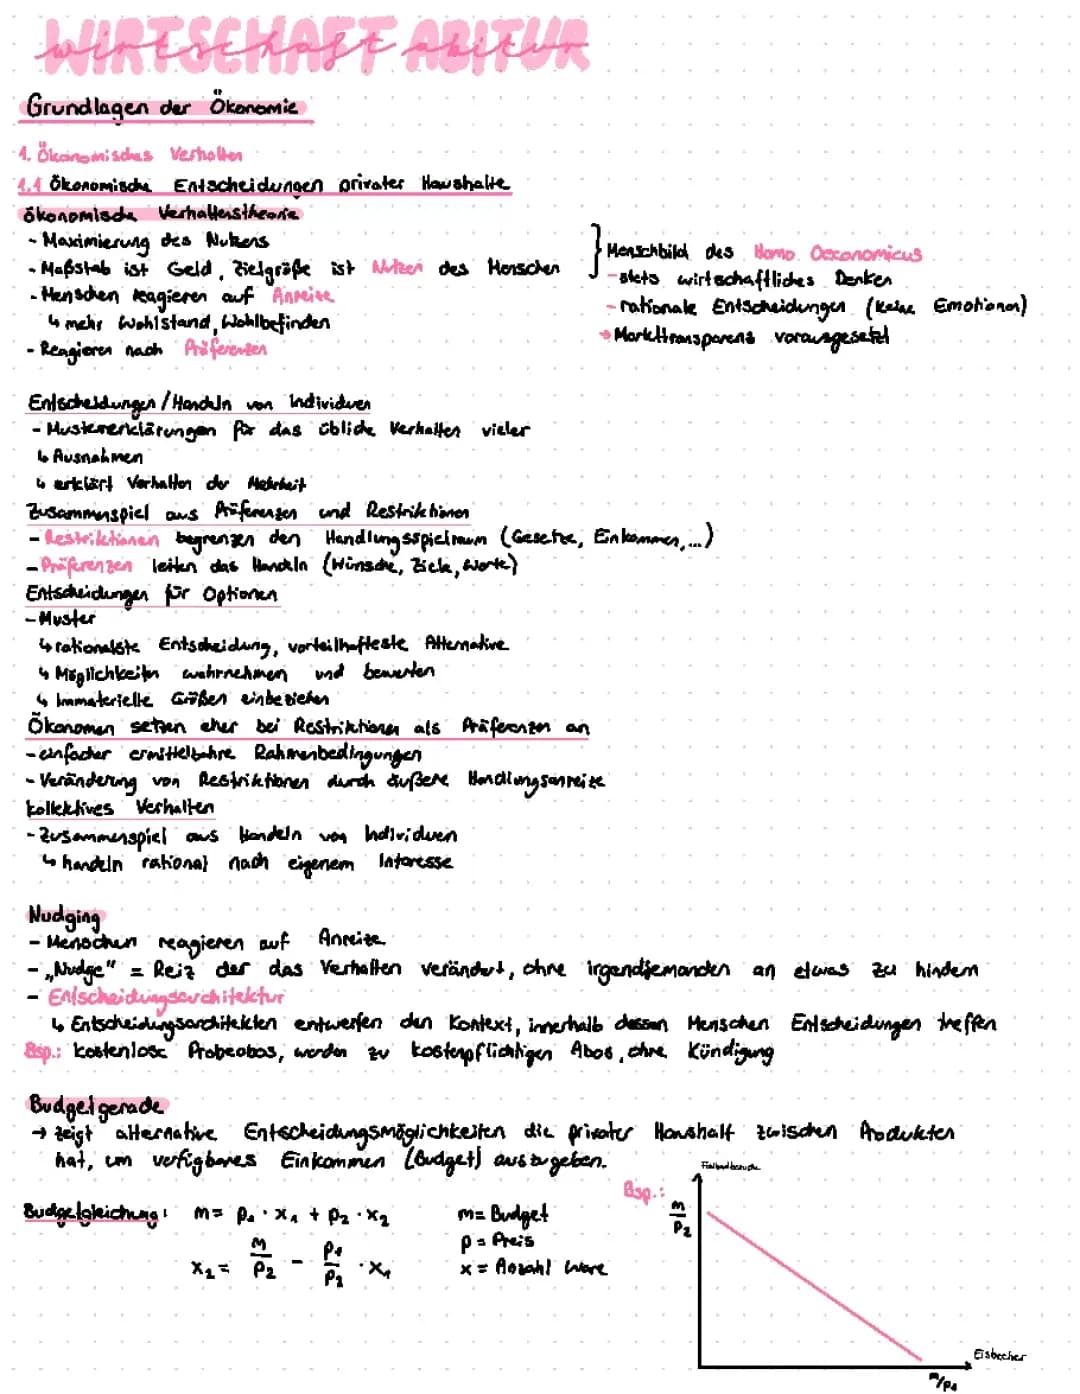 WIRTSCHAFT ABITUR
Grundlagen der Ökonomie
1. Ökonomisches Verhalten
1.1 Ökonomische Entscheidungen privater Haushalte
ökonomische Verhaltenstheorie
- Maximierung des Nutzens
- Maßstab ist Geld, Zielgröße ist Nutzen des Menschen
- Menschen reagieren auf Anreize
↳ mehr Wohlstand, Wohlbefinden
- Reagieren nach Präferenzen
} Menschbild des Homo Oeconomicus
- stets wirtschaftliches Denken
- rationale Entscheidungen (keine Emotionen)
→ Markttransparenz vorausgesetzt
Entscheidungen / Handeln von Individuen
- Mustererklärungen für das übliche Verhalten vieler
↳ Ausnahmen
↳ erklärt Verhalten der Mehrheit
Zusammenspiel aus Präferenzen und Restriktionen
- Restriktionen begrenzen den Handlungsspielraum (Gesetze, Einkommen,...)
- Präferenzen leiten das Handeln (Wünsche, Ziele, Werte)
Entscheidungen für Optionen
- Muster
↳ rationalste Entscheidung, vorteilhafteste Alternative
↳ Möglichkeiten wahrnehmen und bewerten
↳ Immaterielle Größen einbeziehen
Ökonomen setzen eher bei Restriktionen als Präferenzen an
- einfacher ermittelbahre Rahmenbedingungen
- Veränderung von Restriktionen durch äußere Handlungsanreize
kollektives Verhalten
- Zusammenspiel aus Handeln von Individuen
↳ handeln rational nach eigenem Interesse
Nudging
- Menschen reagieren auf Anreize
- „Nudge" = Reiz der das Verhalten verändert, ohne irgendjemanden an etwas zu hindern
- Entscheidungsarchitektur
↳ Entscheidungsarchitekten entwerfen den Kontext, innerhalb dessen Menschen Entscheidungen treffen
Bsp.: kostenlose Probeabos, werden zu kostenpflichtigen Abos, ohne Kündigung
Budgetgerade
→ zeigt alternative Entscheidungsmöglichkeiten die privater Haushalt zwischen Produkten
hat, um verfügbares Einkommen (Budget) auszugeben.
Budgetgleichung: m = p₁ · x₁ + p₂ · x₂
x₂ = m/p₂ - p₁/p₂ · x₁
m = Budget
p = Preis
x = Anzahl Ware
Bsp.:
Freibadbesuche
m/p₂
Eisbecher
m/p₁